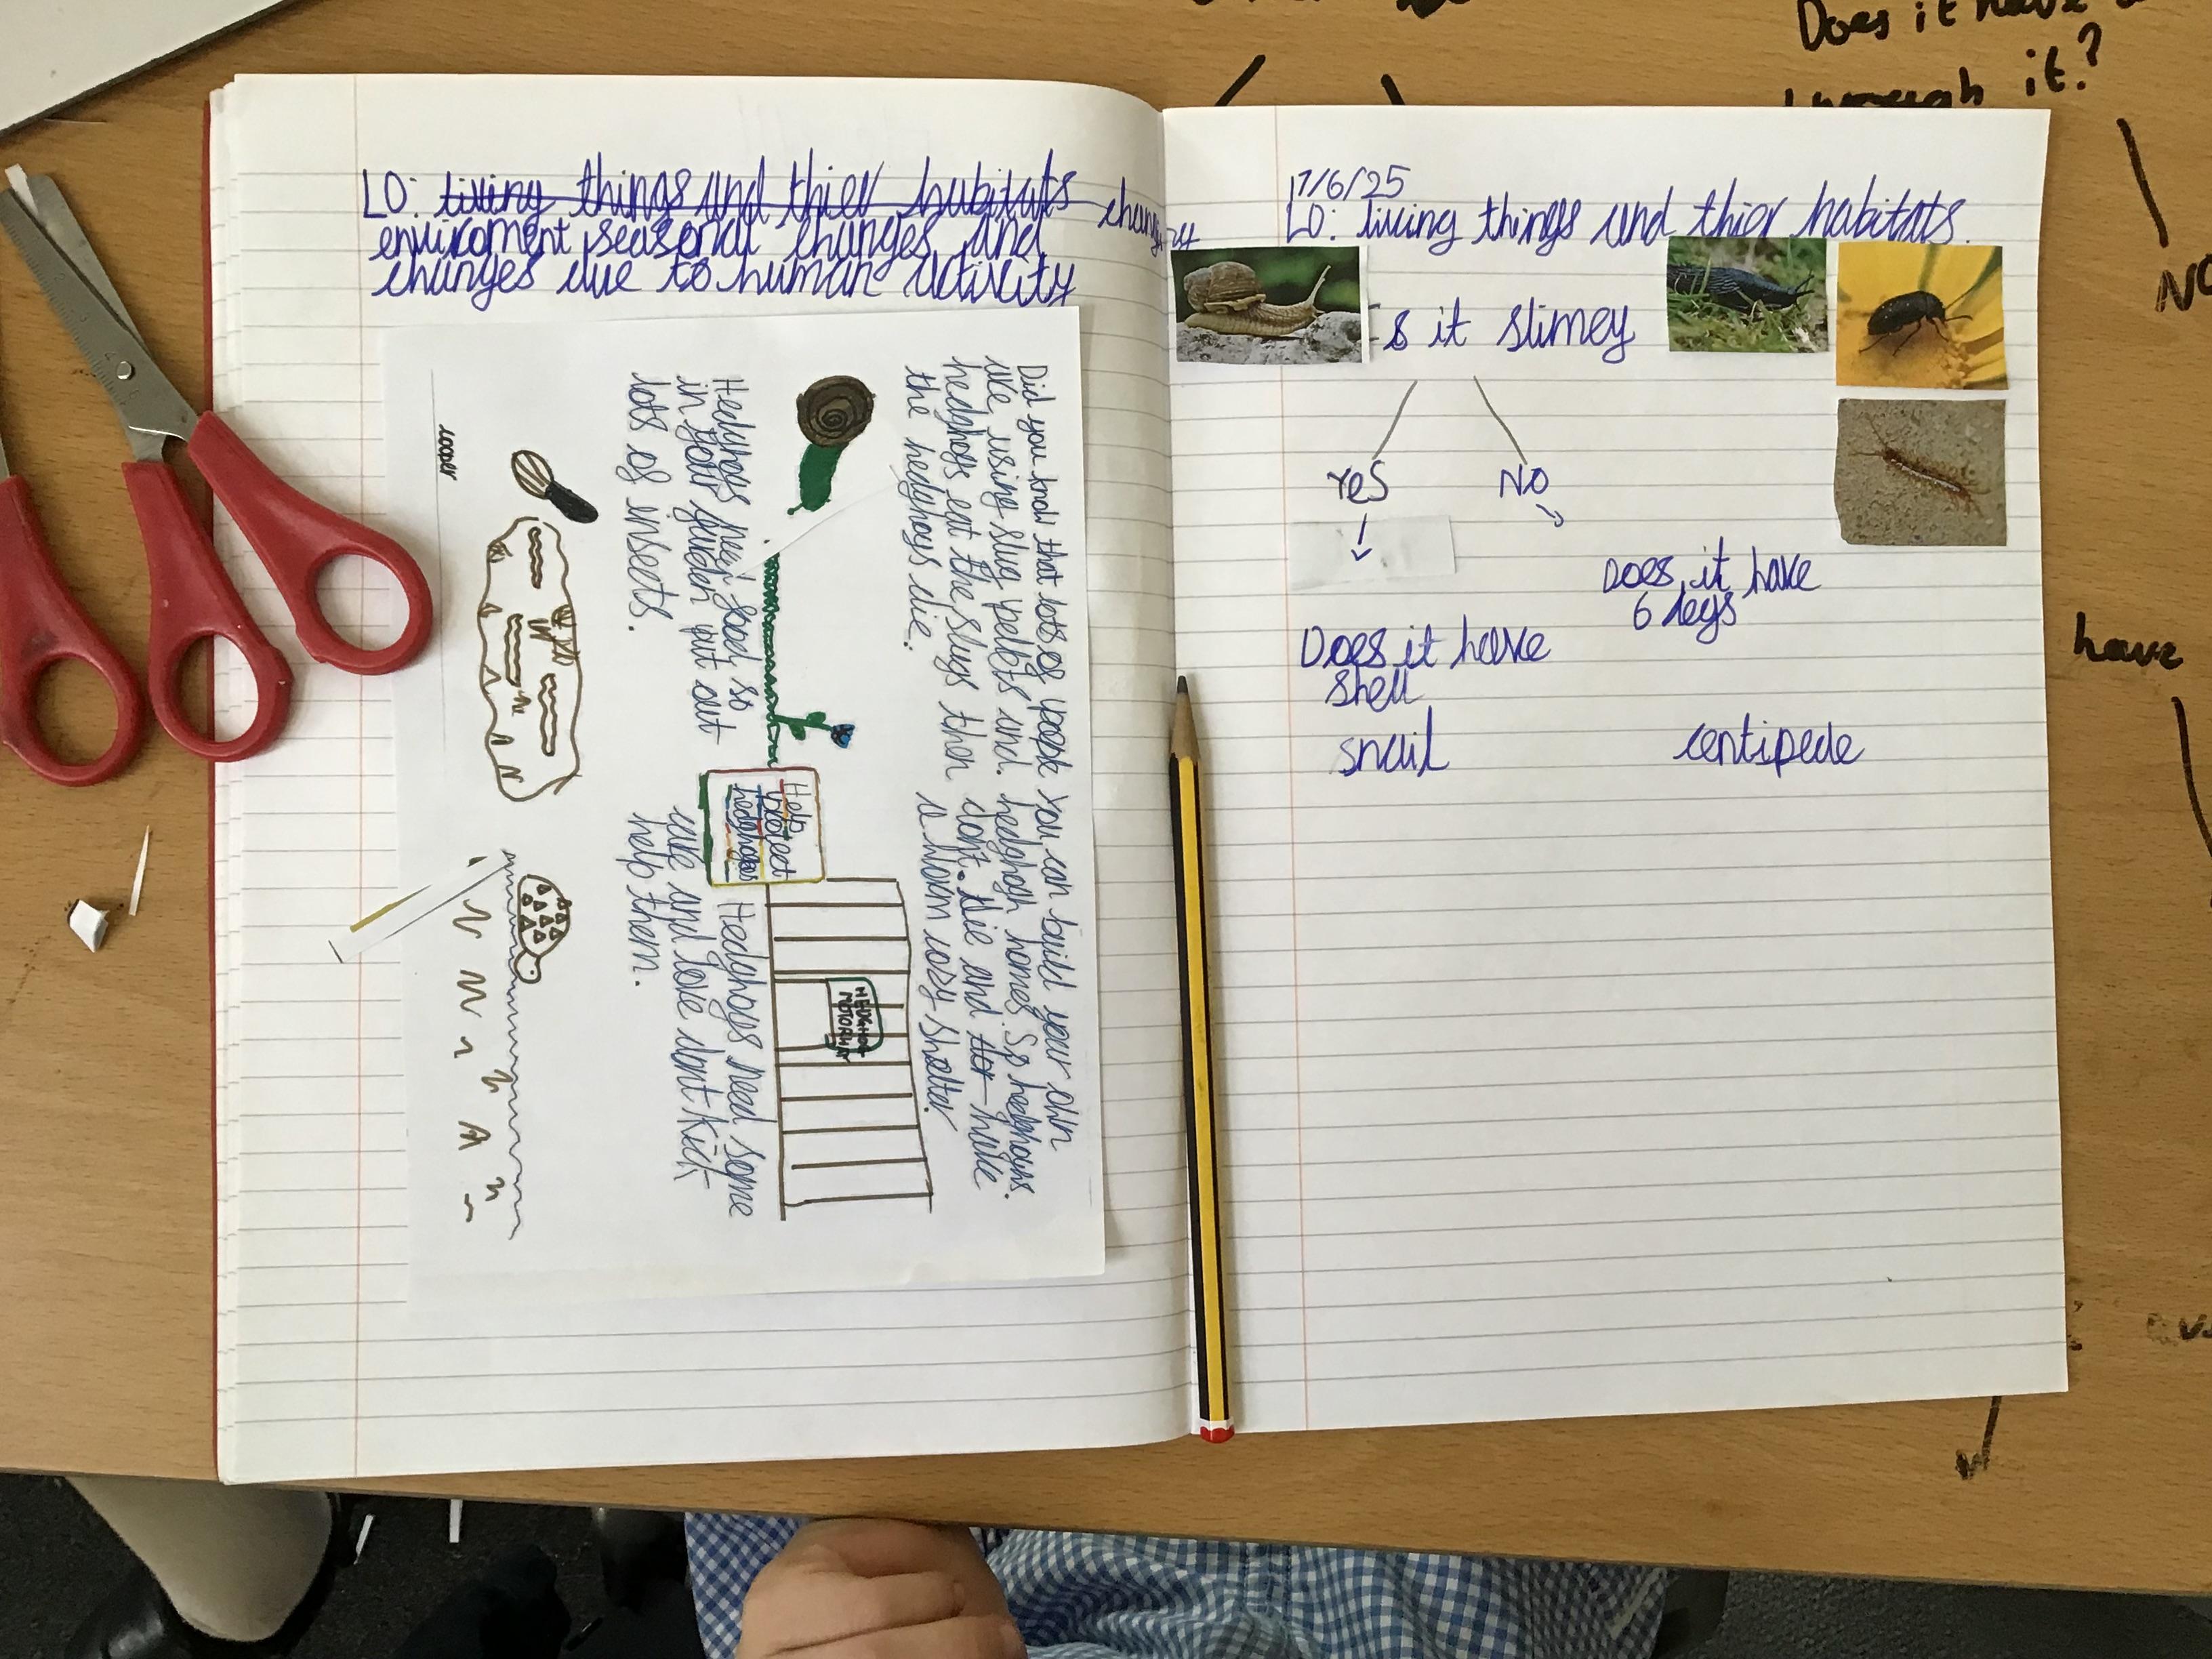 LO: living things and thier habitats changes
enviroment, seasonal changes, and
changes due to human activity
Did you know that lots of people
like using slug pelets and.
hedghogs eat the slugs then
the hedghogs die.
You can build your own
hedghogh homes. So hedghogs.
dont. die and have
a warm cosy shelter
HEDGHOG
MOTORWAY
Help
protect
hedghogs
Hedghogs need food, so
in your garden put out
lots of insects.
Hedghogs need some
care and love dont kick
help them.
cooper
17/6/25
LO: living things and thier habitats.
Is it slimey
Yes
NO
Does it have
6 legs
Does it have
shell
snail
centipede
Does it have
through it?
NO
have